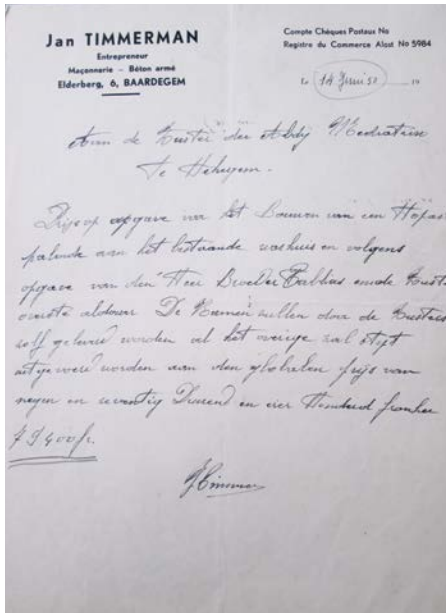 Jan TIMMERMAN
Entrepreneur
Maçonnerie — Béton armé
Elderberg, 6, BAARDEGEM
Compte Chèques Postaux No
Registre du Commerce Alost No 5984
14 Juni 52 19
Aan de Zuster der Abdij Mediatrix
Te Hekegem.
Prijsopgave voor het Bouwen van een
palende aan het bestaande washuis en volgens
opgave van den Heer Broeder en de Zuster
overste aldaar De Ramen zullen door de Zusters
zelf geleverd worden al het overige zal stipt
uitgevoerd worden aan den globalen prijs van
negen en seventig Duizend en vier Honderd franken
79400 fr.